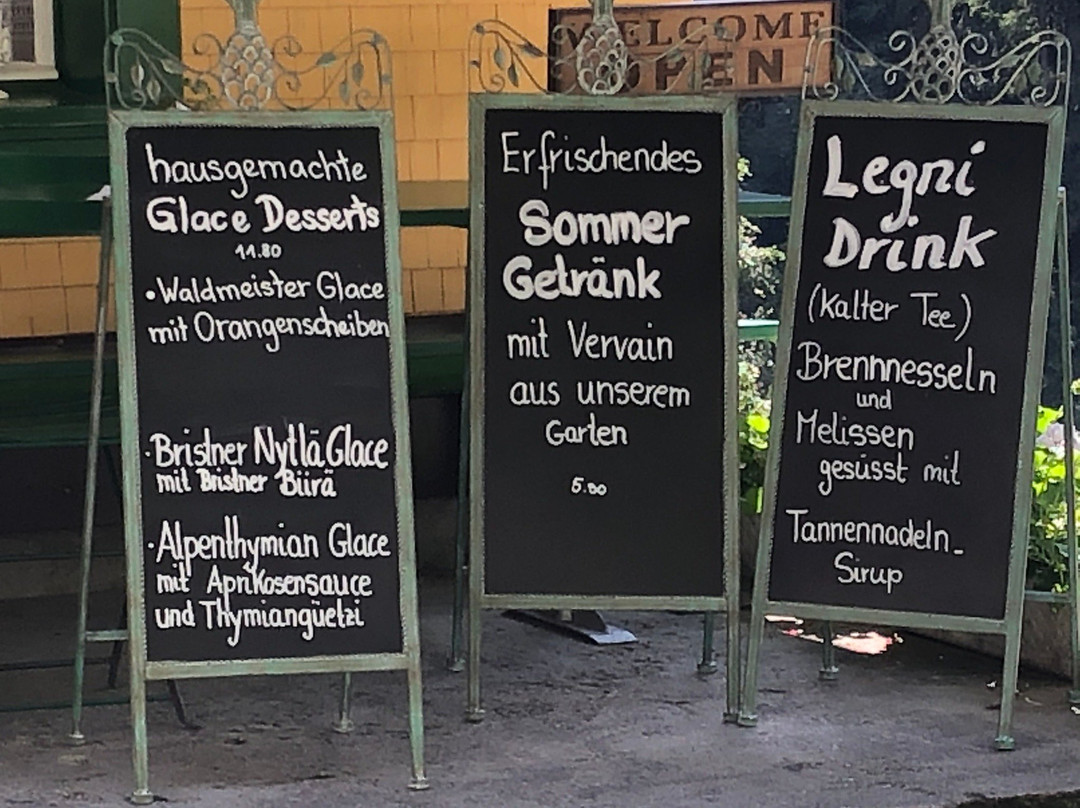 WELCOME
OPEN
hausgemachte
Glace Desserts
11.80
• Waldmeister Glace
mit Orangenscheiben
· Bristner Nytlä Glace
mit Bristner Bürä
· Alpenthymian Glace
mit Aprikosensauce
und Thymiangüetzi
Erfrischendes
Sommer
Getränk
mit Vervain
aus unserem
Garten
5.80
Legni
Drink
(Kalter Tee)
Brennnesseln
und
Melissen
gesüsst mit
Tannennadeln-
Sirup